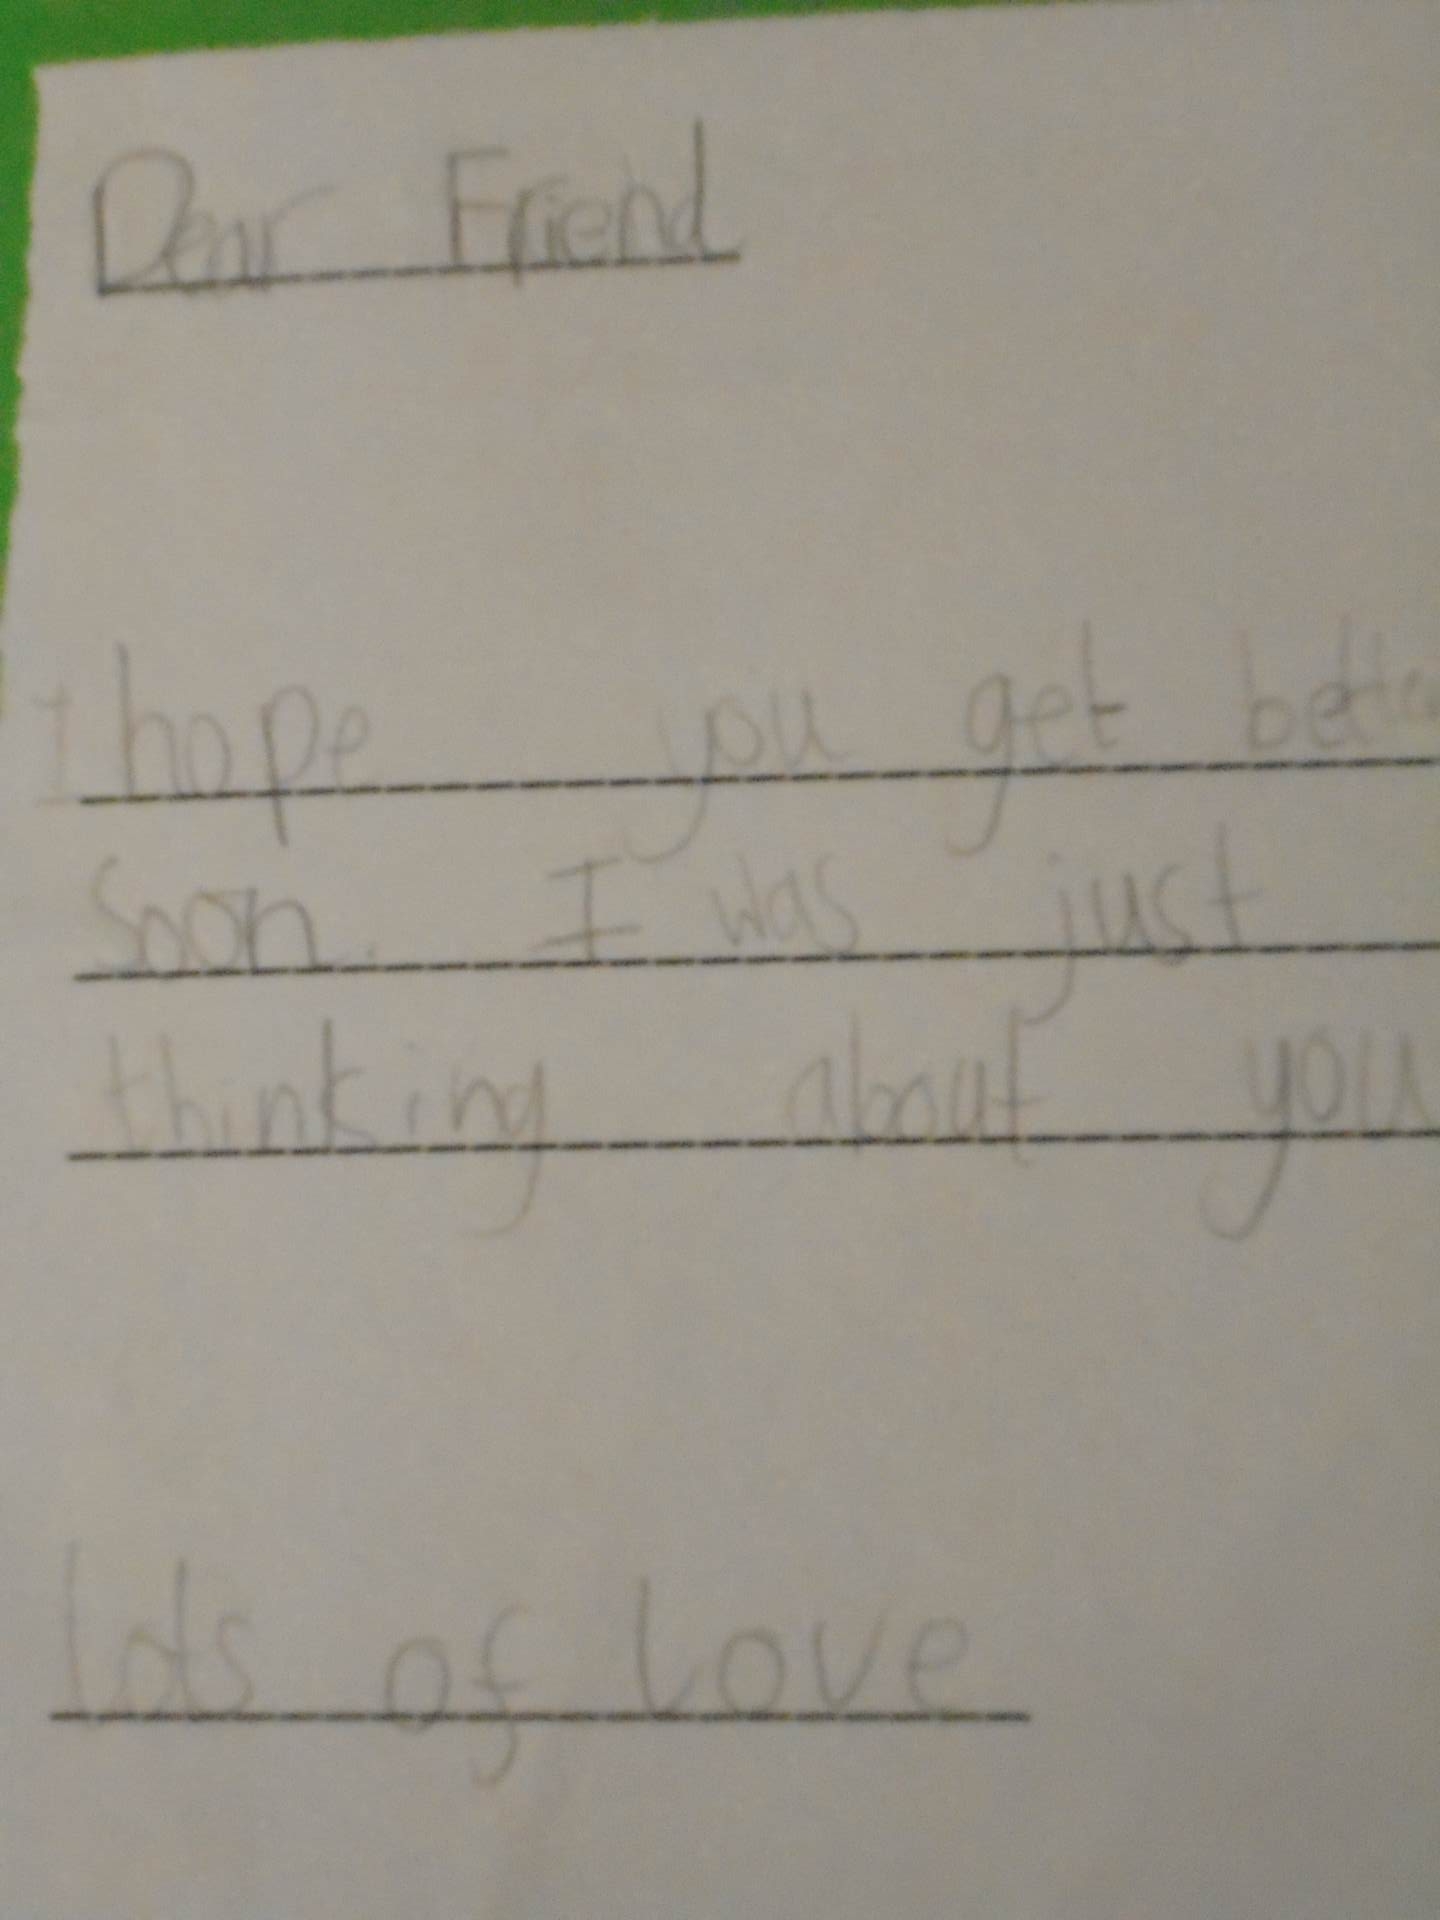 Dear Friend
I hope you get bette
Soon. I was just
thinking about you
lots of love